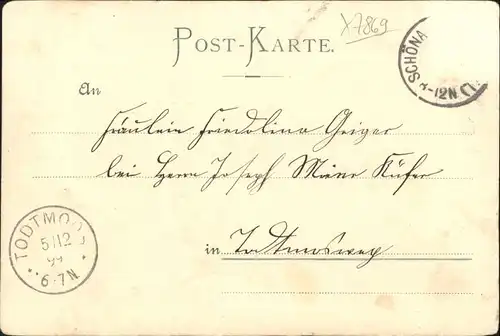 X7869
POST-KARTE.
SCHÖNA
An
Fräulein Friedolina Geiger
bei Herrn Joseph Maier Küfer
in Todtmoosweg
TODTMOOS
5/12
99
6-7N
-12N